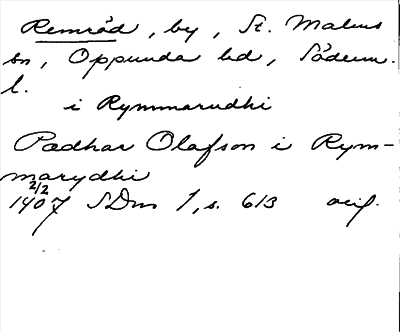 Remröd, by, St. Malms
sn, Oppunda hd, Söderm.
l.
i Rymmarudhi
Padhar Olafson i Rym-
marydhi
2/2
1407 SDns 1, s. 613 orig.